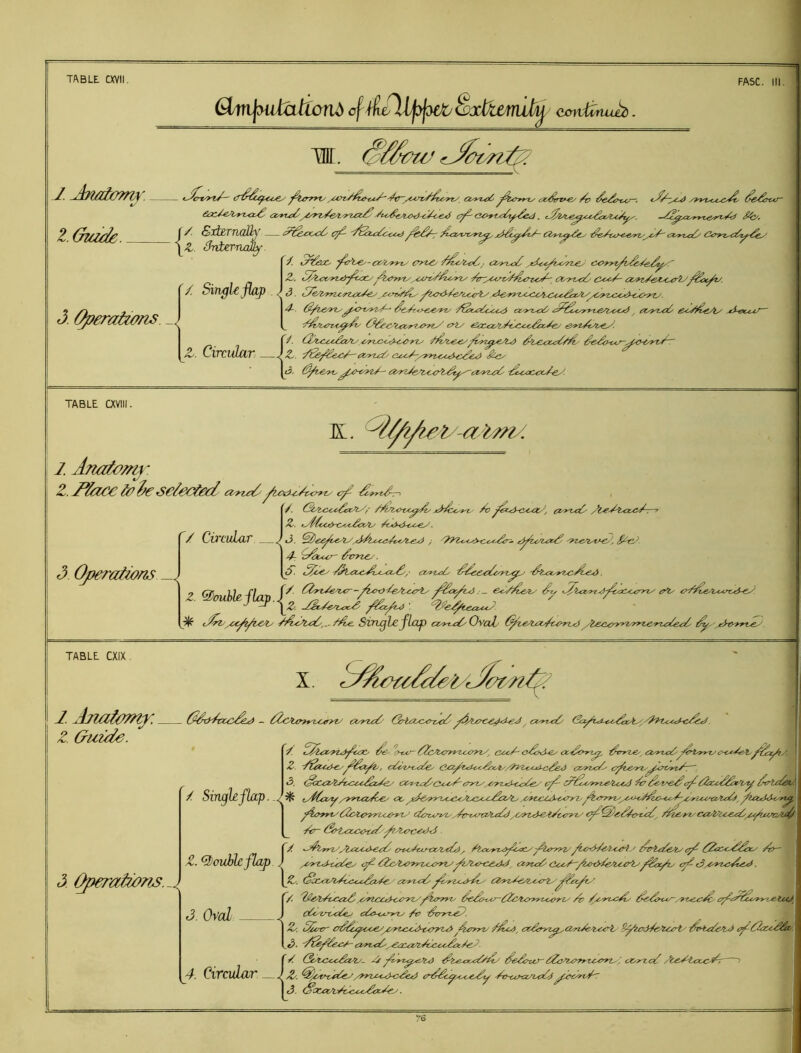 TABLE CXVII.
FASC. III.
Amputations of the Upper Extremity continued.
VIII. Elbow Joint.
1. Anatomy. Joint oblique from without to within, and from above to below. It is much below
external and internal tuberosities of condyles. Irregularity. Ligaments &c.
2. Guide.
1. Externally Head of Radius felt
2. Internally.
3. Operations.
1. Single flap
1. Flex fore-arm one third, and supine completely
2. Transfix from without to within, and cut anterior flap.
3. Terminate with posterior semicircular incision.
4. Open joint between Radius and Humerus, and either saw
through Olecranon or exarticulate entire.
2. Circular.
1. Circular incision three fingers breadth below joint
2. Reflect and cut muscles &c
3. Open joint anteriorly and luxate.
TABLE CXVIII.
IX. Upper-arm.
1. Anatomy.
2. Place to be selected and position of limb
3. Operations
1. Circular
1. Circular, through skin to fascia, and retract
2. Muscular tissue.
3. Deeper structures, musculo-spiral nerve, &c.
4. Saw bone.
5. Tie brachial, and bleeding branches.
2. Double flap.
1. Antero-posterior flaps. either by Transfixion or otherwise.
2. Lateral flaps. Velpeau
* In upper third, the Single flap and Oval Operations recommended by some.
TABLE CXIX
X. Shoulder Joint.
1. Anatomy. Obstacles – Acromion and Coracoid processes, and Capsular Muscles.
2. Guide.
3. Operations.
1. Single flap.
1. Transfix below Acromion, cut close along bone, and form outer flap.
2. Raise flap, divide Capsular muscles and open joint
3. Exarticulate and cut on inside of Humerus to level of Axillary border
* Many make a semicircular incision from without inwards, passing
from Acromion down towards insertion of Deltoid, then carried upwards
to Coracoid process
2. Double flap
1. Arm raised outwards, transfix from posterior border of Axilla to
inside of Acromion process, and cut posterior flap of 3 inches.
2. Exarticulate and finish anterior flap
3. Oval
1. Vertical incision from below Acromion to inch below neck of Humerus
dividing down to bone.
2. Two oblique incisions from this, along anterior & posterior borders of Axilla
3. Reflect and exarticulate.
4. Circular
1. Circular. 4 fingers breadth below Acromion, and retract
2. Divide muscles obliquely towards joint
3. Exarticulate.
76